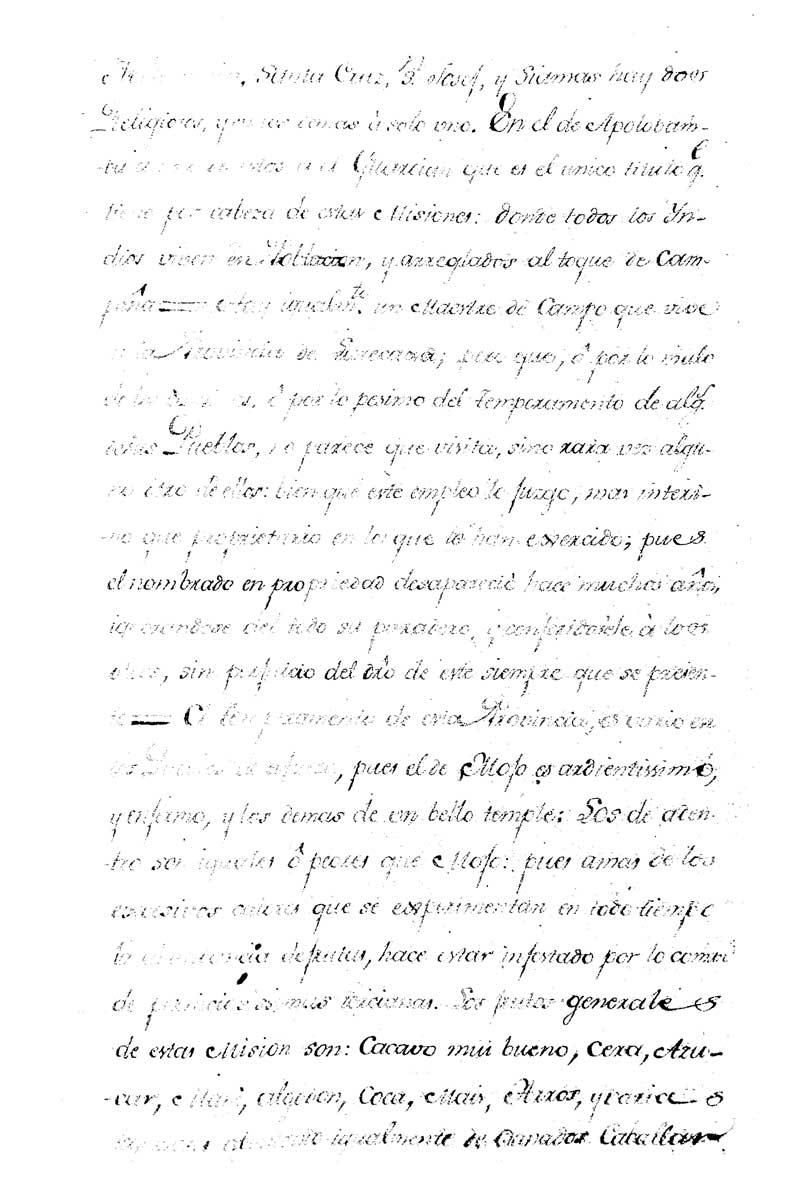 Santa Cruz, Sn. Josef, y Siamas hay doos
Religiosos, y en los demas à solo uno. En el de Apolobam-
el Guardian que es el unico titulo qe.
tiene por cabeza de estas Misiones: donde todos los Yn-
dios viven en Poblacion, y arreglados al toque de Cam-
paña Hay igualmte. un Maestre de Campo que vive
la Provincia de; pero que, ô por lo malo
de los, ô por lo pesimo del Temperamento de algs.
estos Pueblos, no parece que visita, sino rara vez algu-
no ôtro de ellos: bien que este empleo lo juzgo, mas interi-
no que proprietario en los que lo han exercido; pues
el nombrado en propriedad desapareciò hace muchos años,
ignorandose del todo su paradero, y confiriòsele à loos
otros, sin perjuicio del dro̅ de este siempre que se presen-
te El temperamento de esta Provincia, es vario en
los Pueblos de afuera, pues el de Moxo es ardientissimo,
y enfermo, y los demas de un bello temple: Los de aden-
tro son iguales ô peores que Moxo: pues amas de los
excesivos calores que se experimentan en todo tiempo
la, hace estar infestado por lo comun
de perniciosissimas tercianas. Los frutos generales
de estas Mision son: Cacavo mui bueno, Cera, Azu-
car, Mani, algodon, Coca, Mais, Arros, y varias
igualmente de Ganados Caballar